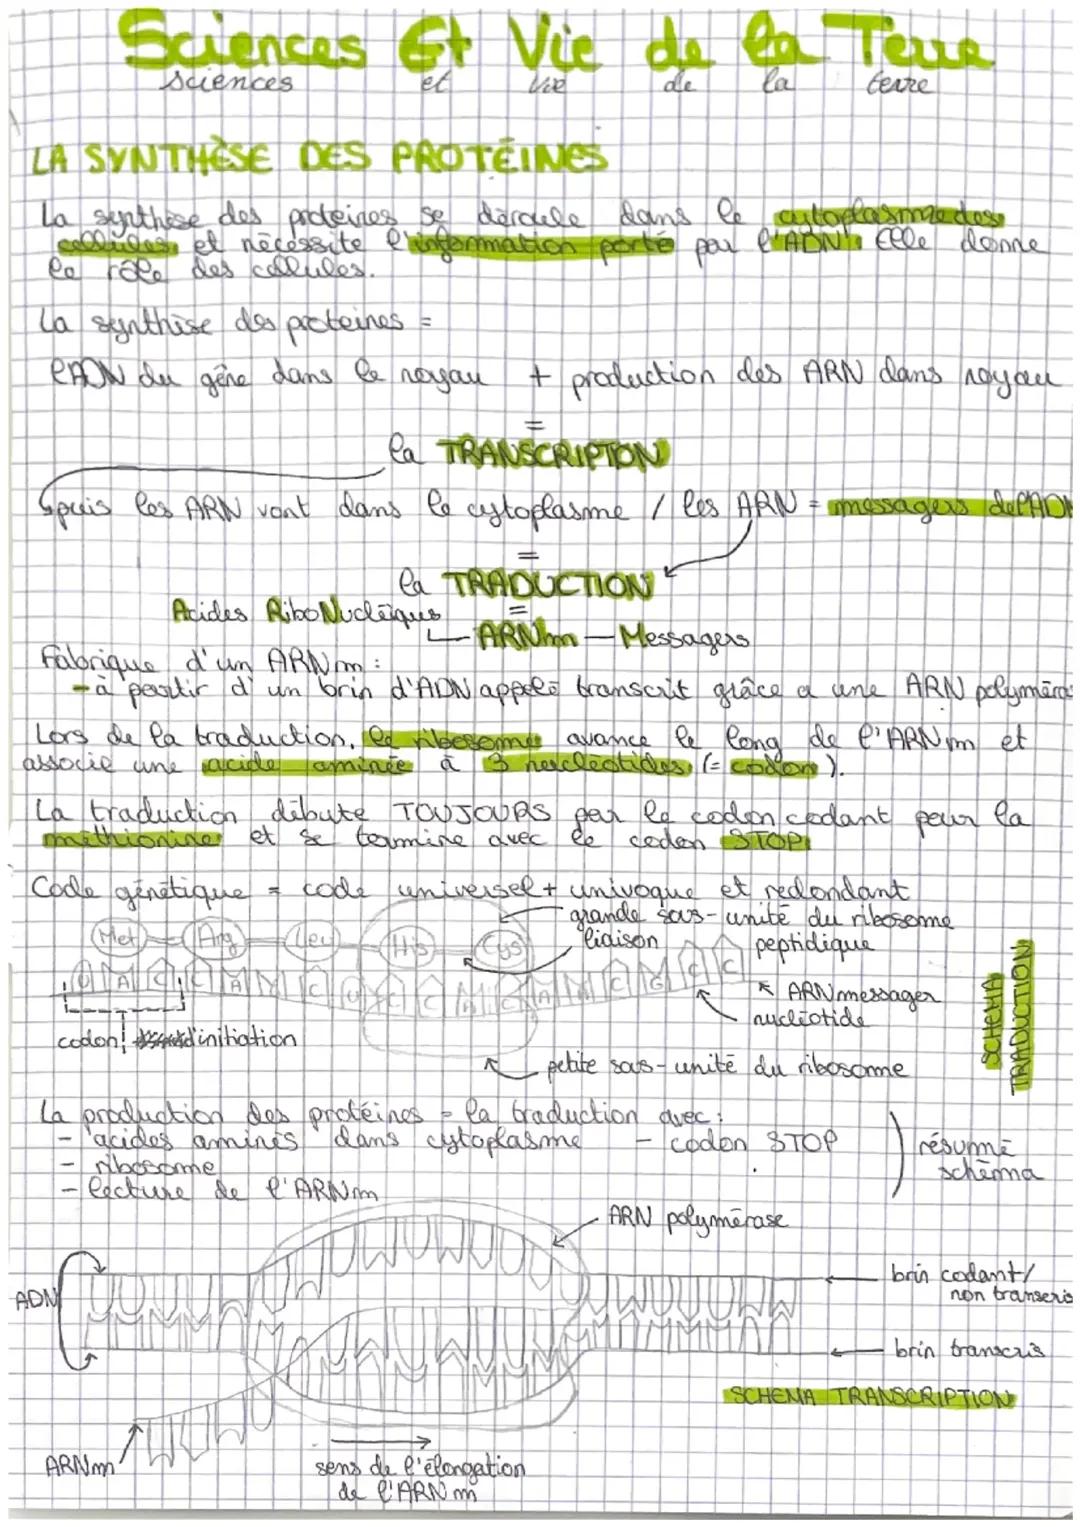 Sciences Et Vie de la Terre
sciences et vie de la terre
LA SYNTHÈSE DES PROTÉINES
La synthèse des protéines se déroule dans le cytoplasme des
cellules, et nécessite l'information porté par l'ADN. Elle donne
le rôle des cellules.
La synthèse des protéines =
l'ADN du gène dans le noyau + production des ARN dans noyau
=
la TRANSCRIPTON
puis les ARN vont dans le cytoplasme / les ARN = messagers de l'ADN
=
la TRADUCTION
=
Acides RiboNucléiques ARNm — Messagers
Fabrique d'un ARNm :
- à partir d'un brin d'ADN appelé transcrit grâce a une ARN polyméra
Lors de la traduction, le ribosome avance le long de l'ARNm et
associe une acide aminée à 3 nucléotides (= codon).
La traduction débute TOUJOURS par le codon codant pour la
méthionine et se termine avec le codon STOP.
Code génétique = code universel + univoque et redondant
grande sous-unité du ribosome
Met Arg Leu His Cys
liaison peptidique
U A C C A C U C C A C A C G C C
ARN messager
nucléotide
codon d'initiation
petite sous-unité du ribosome
SCHEMA TRADUCTION
La production des protéines = la traduction avec :
- acides aminés dans cytoplasme - codon STOP
- ribosome
- lecture de l'ARNm
résumé
schéma
ARN polymérase
ADN
brin codant/
non transcris
brin transcris
SCHEMA TRANSCRIPTION
ARNm
sens de l'élongation
de l'ARNm